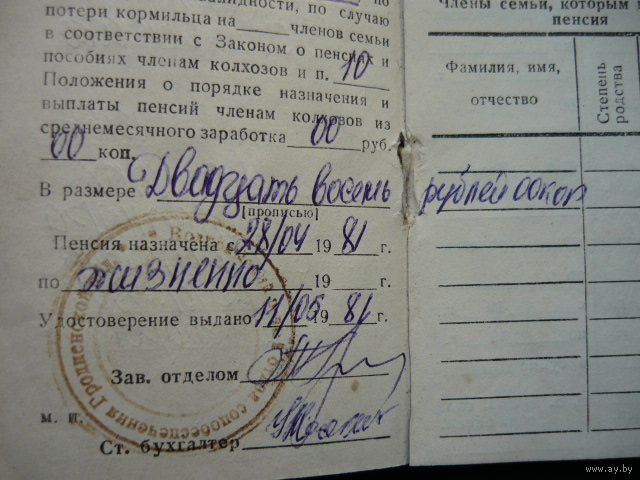 по
валидности, по случаю
потери кормильца на членов семьи
в соответствии с Законом о пенсиях и
пособиях членам колхозов и п. 10
Положения о порядке назначения и
выплаты пенсий членам колхозов из
среднемесячного заработка 00 руб.
00 коп.
В размере Двадцать восемь рублей 00 коп
[прописью]
Пенсия назначена с 28/04 1981 г.
по жизненно 19 г.
Удостоверение выдано 11/05 1981 г.
Зав. отделом
м. п.
Ст. бухгалтер
Члены семьи, которым
пенсия
Фамилия, имя,
отчество
Степень
родства
собеспечения Гродненского
www.ay.by